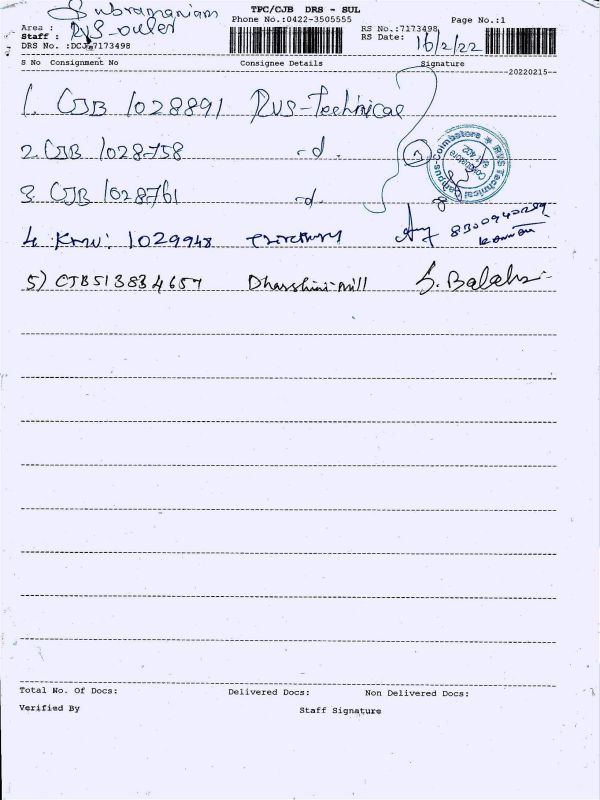 Subramaniam
TPC/CJB DRS - SUL
Phone No.:0422-3505555
Page No.:1
Area :
RS No.:7173498
Staff : RVS-
RS Date: 16/2/22
DRS No. :DCJ 7173498
S No Consignment No Consignee Details Signature
20220215
1. CJB 1028891 RVS-Technical
2. CJB 1028758 -d.
3. CJB 1028761 -d.
RVS Technical Campus-Coimbatore
Coimbatore
4. 1029948 8300940289
5) CJB513834657 Dharshini-mill S. Balaha
Total No. Of Docs: Delivered Docs: Non Delivered Docs:
Verified By Staff Signature